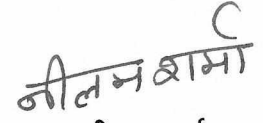 नीलम शर्मा